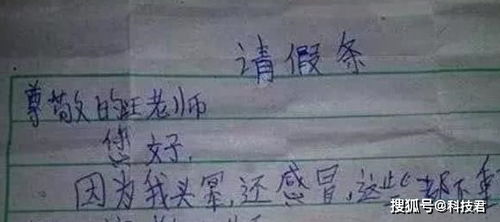 请假条
尊敬的旺老师
您好,
因为我头晕,还感冒,这些都不重
搜狐号@科技君